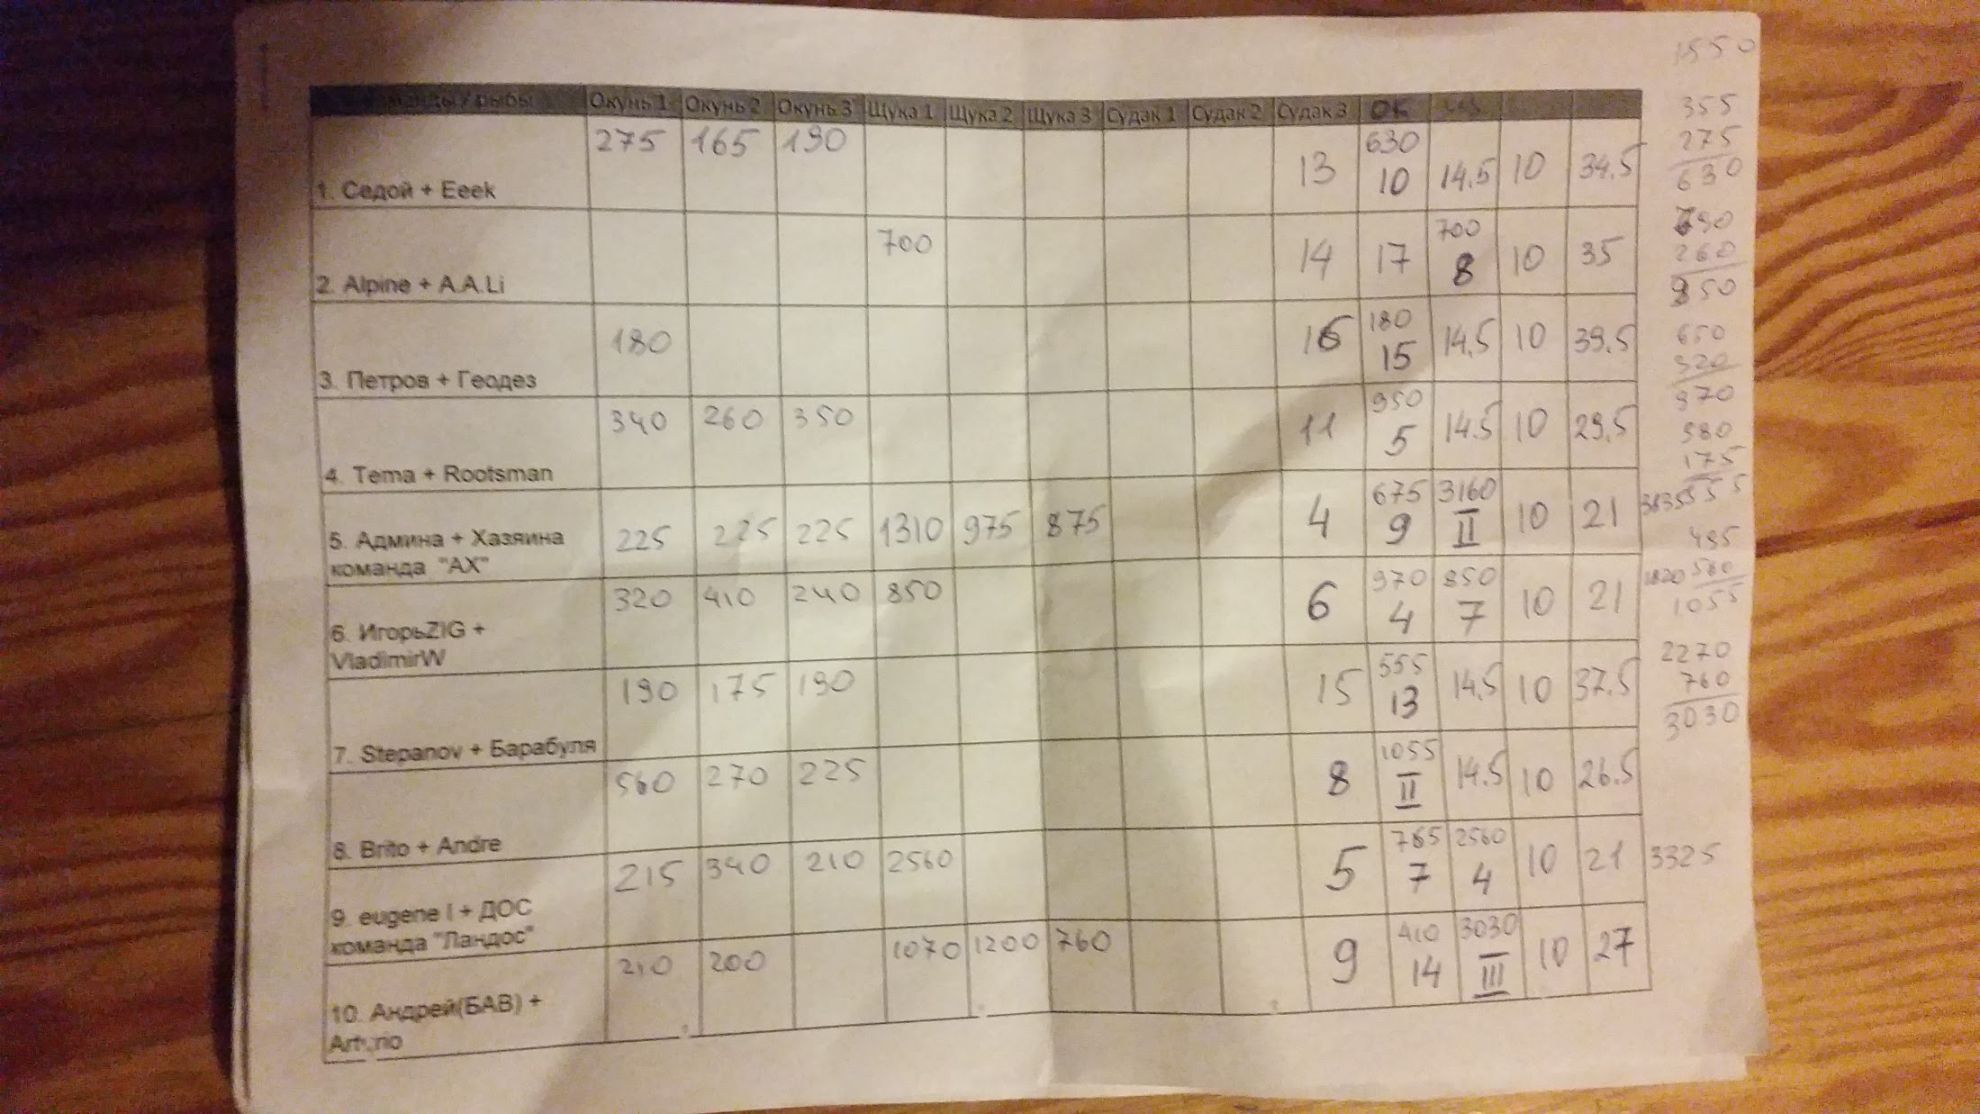 Команды / рыбы Окунь 1 Окунь 2 Окунь 3 Щука 1 Щука 2 Щука 3 Судак 1 Судак 2 Судак 3 ОК
275 165 190 630
1. Седой + Eeek 13 10 14.5 10 34.5
700 700
2. Alpine + A.A.Li 14 17 8 10 35
180 180
3. Петров + Геодез 16 15 14.5 10 39.5
340 260 350 950
4. Tema + Rootsman 11 5 14.5 10 29.5
675 3160
5. Админа + Хазяина 225 225 225 1310 975 875 4 9 II 10 21
команда "АХ"
320 410 240 850 970 850
6. ИгорьZIG + 6 4 7 10 21
VladimirW
190 175 190 555
7. Stepanov + Барабуля 15 13 14.5 10 37.5
560 270 225 1055
8. Brito + Andre 8 II 14.5 10 26.5
215 340 210 2560 765 2560
9. eugene l + ДОС 5 7 4 10 21
команда "Ландос"
210 200 1070 1200 760 410 3030
10. Андрей(БАВ) + 9 14 III 10 27
Arturio
1550
355
275
630
690
260
950
650
320
970
380
175
555
3835
495
560
1820
1055
2270
760
3030
3325